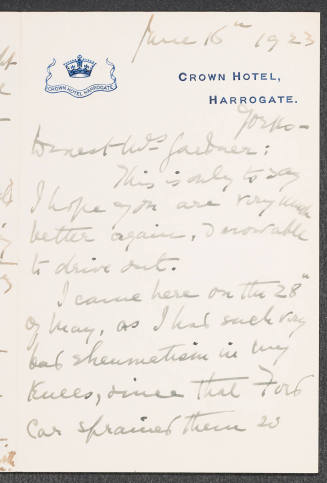 June 16th 1923
CROWN HOTEL HARROGATE
CROWN HOTEL,
HARROGATE.
Yorks-
Dearest Mrs Gardner:
This is only to say
I hope you are very much
better again, & now able
to drive out.
I came here on the 28th
of May, as I had such very
bad rheumatism in my
Knees, since that Ford
car sprained them so